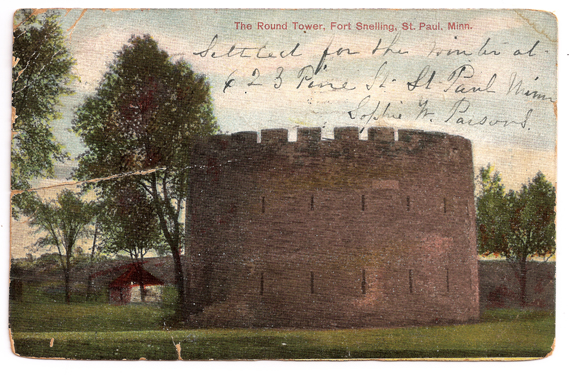 The Round Tower, Fort Snelling, St. Paul, Minn.
Settled for the winter at
623 Pine St. St Paul Minn
Sophie W. Parsons.